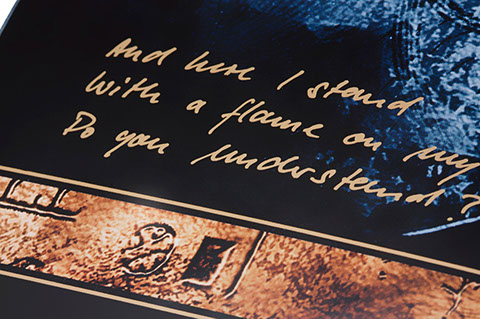 And here I stand
With a flame on my
Do you understand?